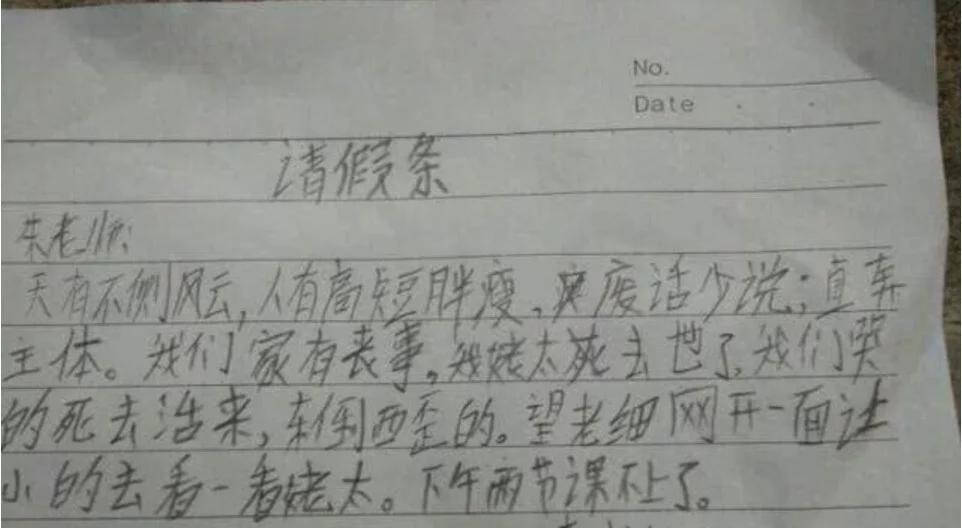 No.
Date
请假条
朱老师:
天有不侧风云,人有高短胖瘦,废话少说;直奔
主体。我们家有丧事,我姥太死去世了,我们哭
的死去活来,东倒西歪的。望老细网开一面让
小的去看一看姥太。下午两节课不上了。